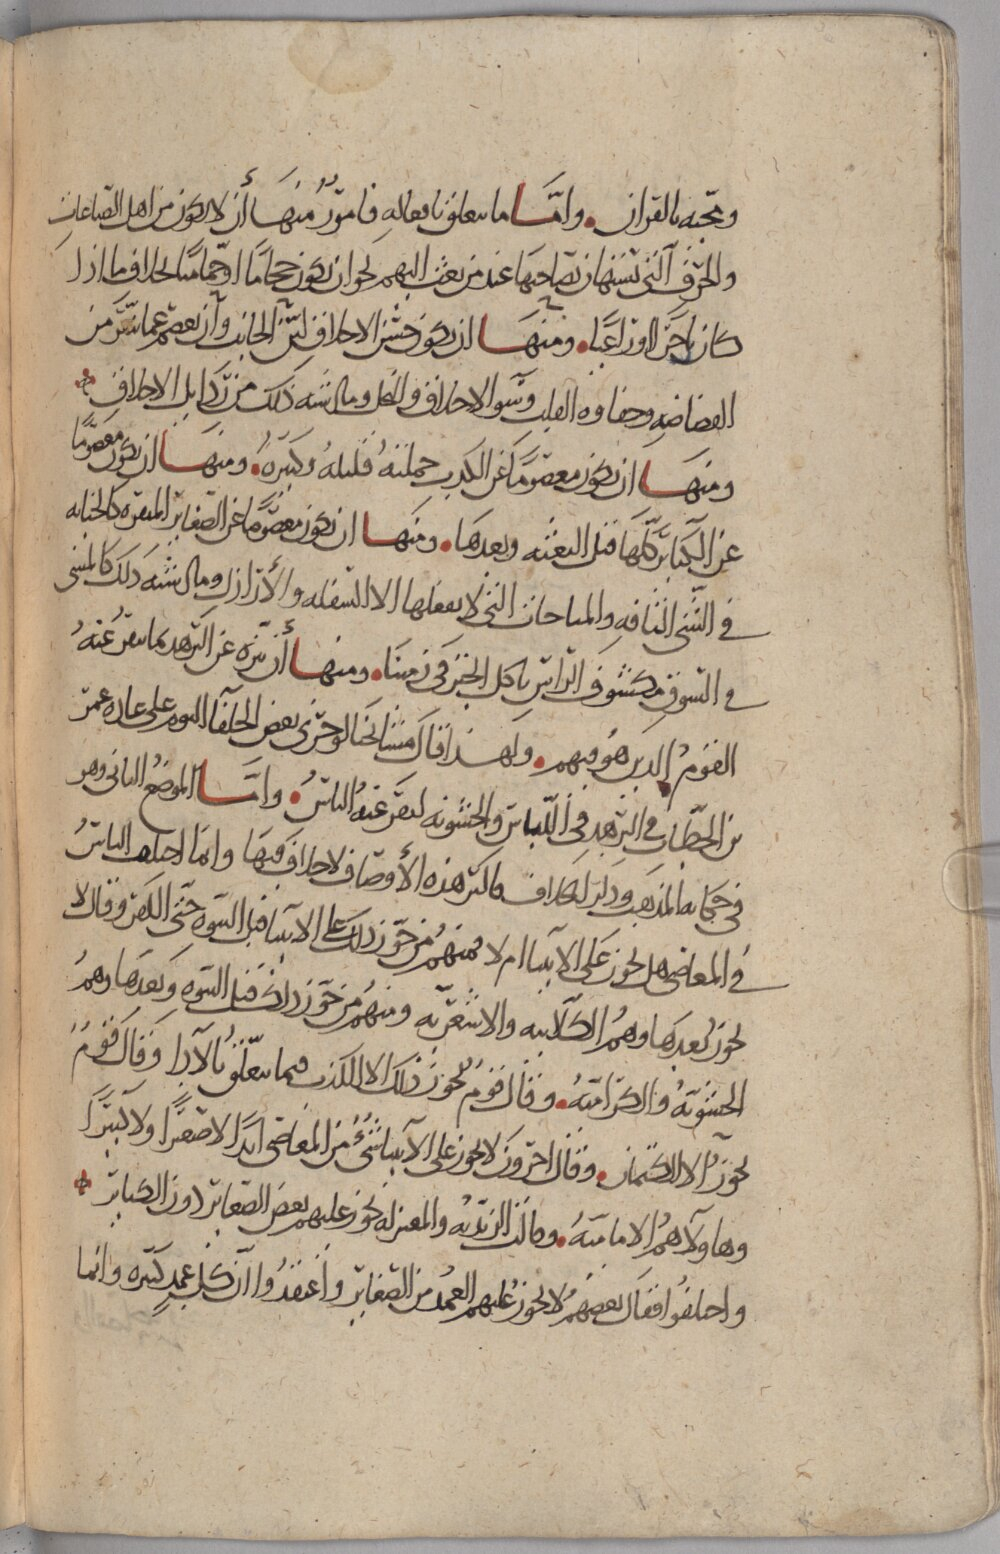 وتحبه بالقران . واما ما يتعلق بافعاله فامور منها أن لا يكون من اهل الصناعات
والحرف التي تستهان بصاحبها عند من بعث اليهم نحو ان يكون حجاما او حماميا بخلاف ما اذا
كان تاجرا او راعيا . ومنها ان يكون حسن الاخلاق لين الجانب وأن يعصم عما ينفر من
الفضاضه وجفاوه القلب وسو الاخلاق والبخل وما اشبه ذلك من رذايل الاخلاق
ومنها ان يكون معصوما عن الكذب جملته قليله وكبيره . ومنها ان يكون معصوما
عن الكبائر كلها قبل البعثه وبعدها . ومنها ان يكون معصوما عن الصغائر المنفره كالخيانه
في الشي التافه والمباحات التي لا يفعلها الا السفله والأراذل وما اشبه ذلك كالمشي
في السوق مكشوف الراس ياكل الخبز في زمننا . ومنها أن يتنزه عن التزهد بما ينفر عنه
القوم الذين هو فيهم . ولهذا قال مشائخنا لو جرى بعض الخلفا اليوم على عاده عمر
بن الخطاب في التزهد في اللباس والخشونه لنفر عنه الناس . واما الموضع الثاني وهو
في حكايه المذهب وذكر الخلاف فاكثر هذه الأوصاف لا خلاف فيها وانما اختلف الناس
في المعاصي هل يجوز على الانبيا ام لا فمنهم من جوز ذلك على الانبيا قبل النبوه حتى الكفر وقال لا
يجوز بعدها وهم الكلابيه والاشعريه ومنهم من جوز ذلك قبل النبوه وبعدها وهم
الحشويه والكراميه . وقال قوم يجوز ذلك الا الكذب فيما يتعلق بالادا وقال قوم
يجوز الا الكتمان . وقال اخرون لا يجوز على الانبيا شئ من المعاصي ابدا لا صغيرا ولا كبيرا
وهاولآ هم الاماميه . وقالت الزيديه والمعتزله يجوز عليهم بعض الصغائر دون الكبائر
واختلفوا فقال بعضهم لا يجوز عليهم العمد من الصغائر واعتقدوا ان كل عمد كبيره وانما